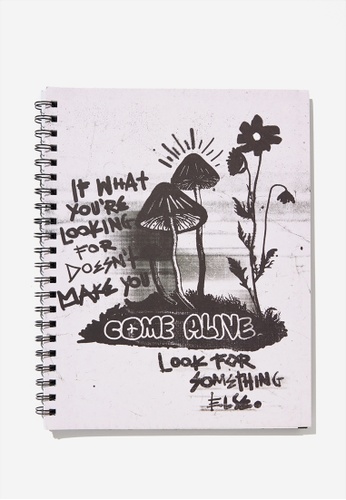 IF WHAT
YOU'RE
LOOKING
FOR
DOESN'T
MAKE YOU
COME ALIVE
LOOK FOR
SOMETHING
ELSE.